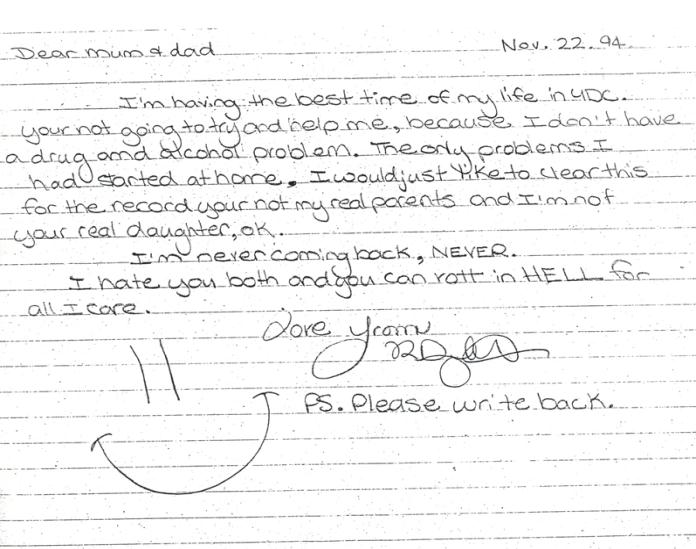 Dear mum & dad
Nov. 22. 94
I'm having the best time of my life in YDC.
your not going to try and help me, because I don't have
a drug and alcohol problem. The only problems I
had started at home. I would just like to clear this
for the record your not my real parents and I'm not
your real daughter, ok.
I'm never coming back, NEVER.
I hate you both and you can rott in HELL for
all I care.
Love
PS. Please write back.